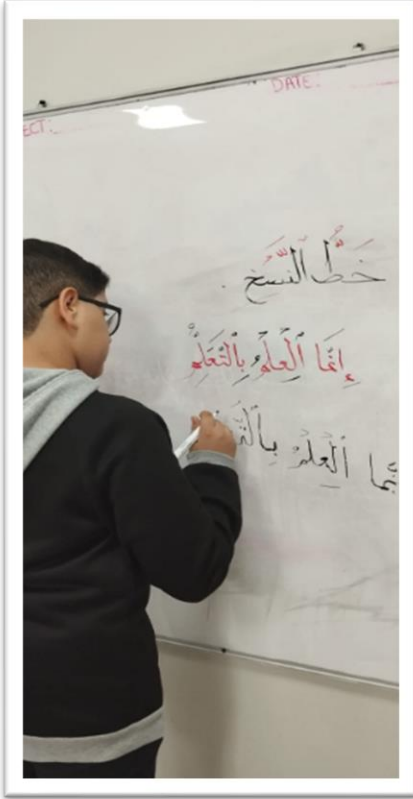 ECT: DATE:
خَطُّ النَّسْخِ
إِنَّمَا الْعِلْمُ بِالتَّعَلُّمِ
نَّما الْعِلْمُ بِالتَّ